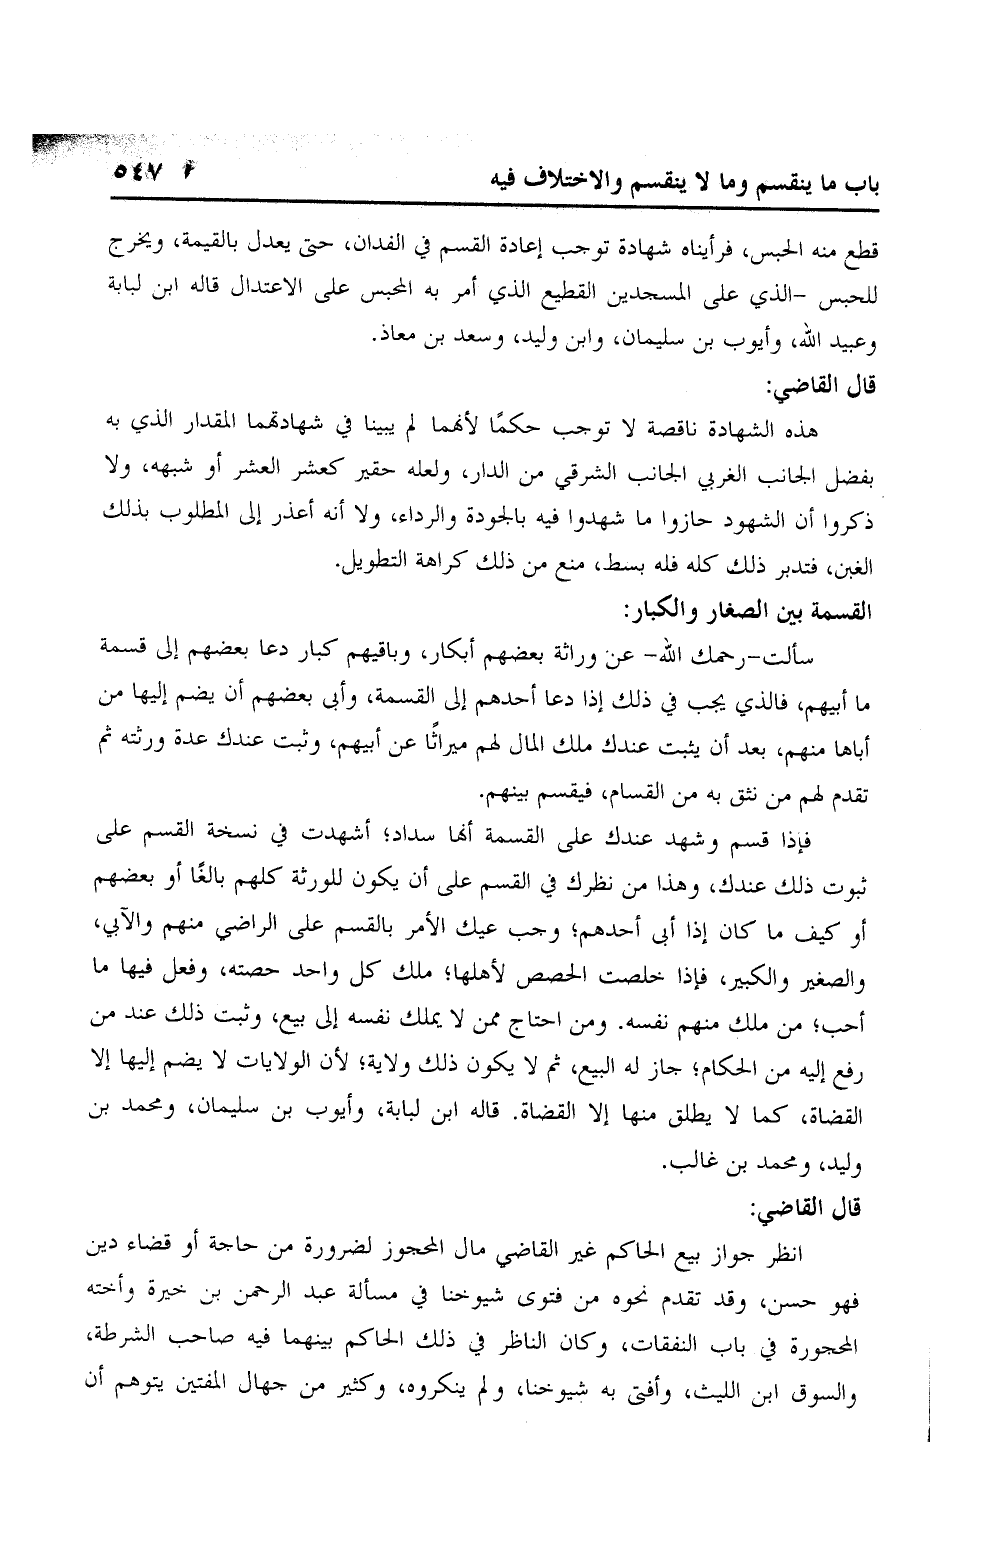 باب ما ينقسم وما لا ينقسم والاختلاف فيه ٥٤٧
قطع منه الحبس، فرأيناه شهادة توجب إعادة القسم في الفدان، حتى يعدل بالقيمة، ويخرج
للحبس -الذي على المسجدين القطيع الذي أمر به المحبس على الاعتدال قاله ابن لبابة
وعبيد الله، وأيوب بن سليمان، وابن وليد، وسعد بن معاذ.
قال القاضي:
هذه الشهادة ناقصة لا توجب حكمًا لأنهما لم يبينا في شهادتهما المقدار الذي به
بفضل الجانب الغربي الجانب الشرقي من الدار، ولعله حقير كعشر العشر أو شبهه، ولا
ذكروا أن الشهود حازوا ما شهدوا فيه بالجودة والرداء، ولا أنه أعذر إلى المطلوب بذلك
الغبن، فتدبر ذلك كله فله بسط، منع من ذلك كراهة التطويل.
القسمة بين الصغار والكبار:
سألت-رحمك الله- عن وراثة بعضهم أبكار، وباقيهم كبار دعا بعضهم إلى قسمة
ما أبيهم، فالذي يجب في ذلك إذا دعا أحدهم إلى القسمة، وأبى بعضهم أن يضم إليها من
أباها منهم، بعد أن يثبت عندك ملك المال لهم ميراثًا عن أبيهم، وثبت عندك عدة ورثته ثم
تقدم لهم من نثق به من القسام، فيقسم بينهم.
فإذا قسم وشهد عندك على القسمة أنها سداد؛ أشهدت في نسخة القسم على
ثبوت ذلك عندك، وهذا من نظرك في القسم على أن يكون للورثة كلهم بالغًا أو بعضهم
أو كيف ما كان إذا أبى أحدهم؛ وجب عيك الأمر بالقسم على الراضي منهم والآبي،
والصغير والكبير، فإذا خلصت الحصص لأهلها؛ ملك كل واحد حصته، وفعل فيها ما
أحب؛ من ملك منهم نفسه. ومن احتاج ممن لا يملك نفسه إلى بيع، وثبت ذلك عند من
رفع إليه من الحكام؛ جاز له البيع، ثم لا يكون ذلك ولاية؛ لأن الولايات لا يضم إليها إلا
القضاة، كما لا يطلق منها إلا القضاة. قاله ابن لبابة، وأيوب بن سليمان، ومحمد بن
وليد، ومحمد بن غالب.
قال القاضي:
انظر جواز بيع الحاكم غير القاضي مال المحجوز لضرورة من حاجة أو قضاء دين
فهو حسن، وقد تقدم نحوه من فتوى شيوخنا في مسألة عبد الرحمن بن خيرة وأخته
المحجورة في باب النفقات، وكان الناظر في ذلك الحاكم بينهما فيه صاحب الشرطة،
والسوق ابن الليث، وأفتى به شيوخنا، ولم ينكروه، وكثير من جهال المفتين يتوهم أن